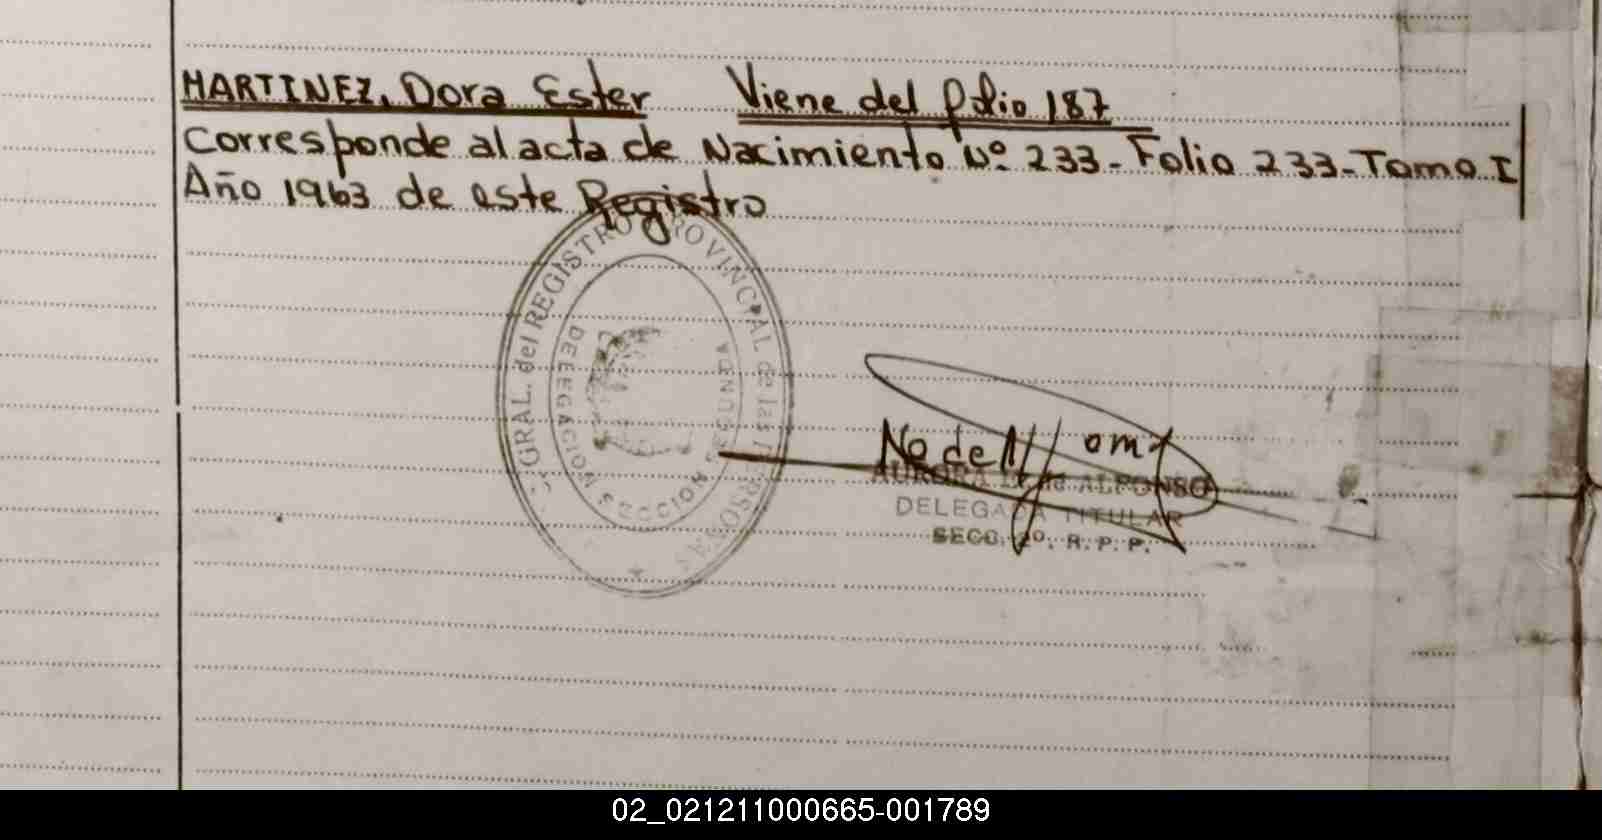 MARTINEZ, Dora Ester Viene del folio 187
Corresponde al acta de Nacimiento Nº 233-Folio 233-Tomo I
Año 1963 de este Registro
GRAL. del REGISTRO PROVINCIAL de las PERSONAS
DELEGACION SECCION SEGUNDA
AURORA de ALFONSO
DELEGADA TITULAR
SECC. 2º. R. P. P.
02_021211000665-001789